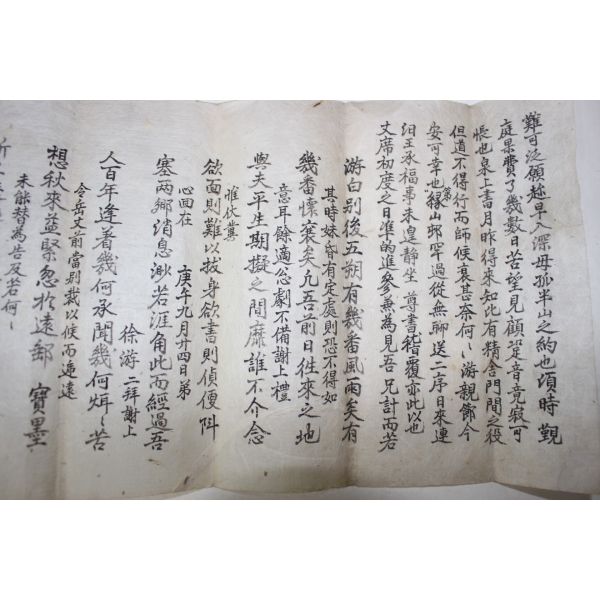 難可泛願趁早入深毋孤半山之約也頃時觀
庭果費了幾數日苦望見顧跫音竟寂可
悵也泉上書月昨得來知此有精舍門閭之役
但道不得行而師候衰甚奈何〻游親節今
安可幸也綠山邨罕過從無聊送二序日來連
汨王承福事未遑静坐尊書稽覆亦此以也
文席初度之日準的進參兼為見吾兄計而若
其時妹昏有定處則恐不得如
意耳餘適忩劇不備謝上禮
惟伏冀
心回在
庚午九月廿四日弟
徐游二拜謝上
令岳丈前當別裁以候而適遠
未能替為告及若何〻
游白別後五朔有幾番風雨矣有
幾番懷裏矣允吾前日徃來之地
與夫平生期擬之間靡誰不介念
欲面則難以拔身欲書則偵便阧
塞两鄉消息渺若涯角此而經過吾
人百年逢着幾何承聞幾何炯〻苦
想秋來益緊忽於遠郵 寶墨